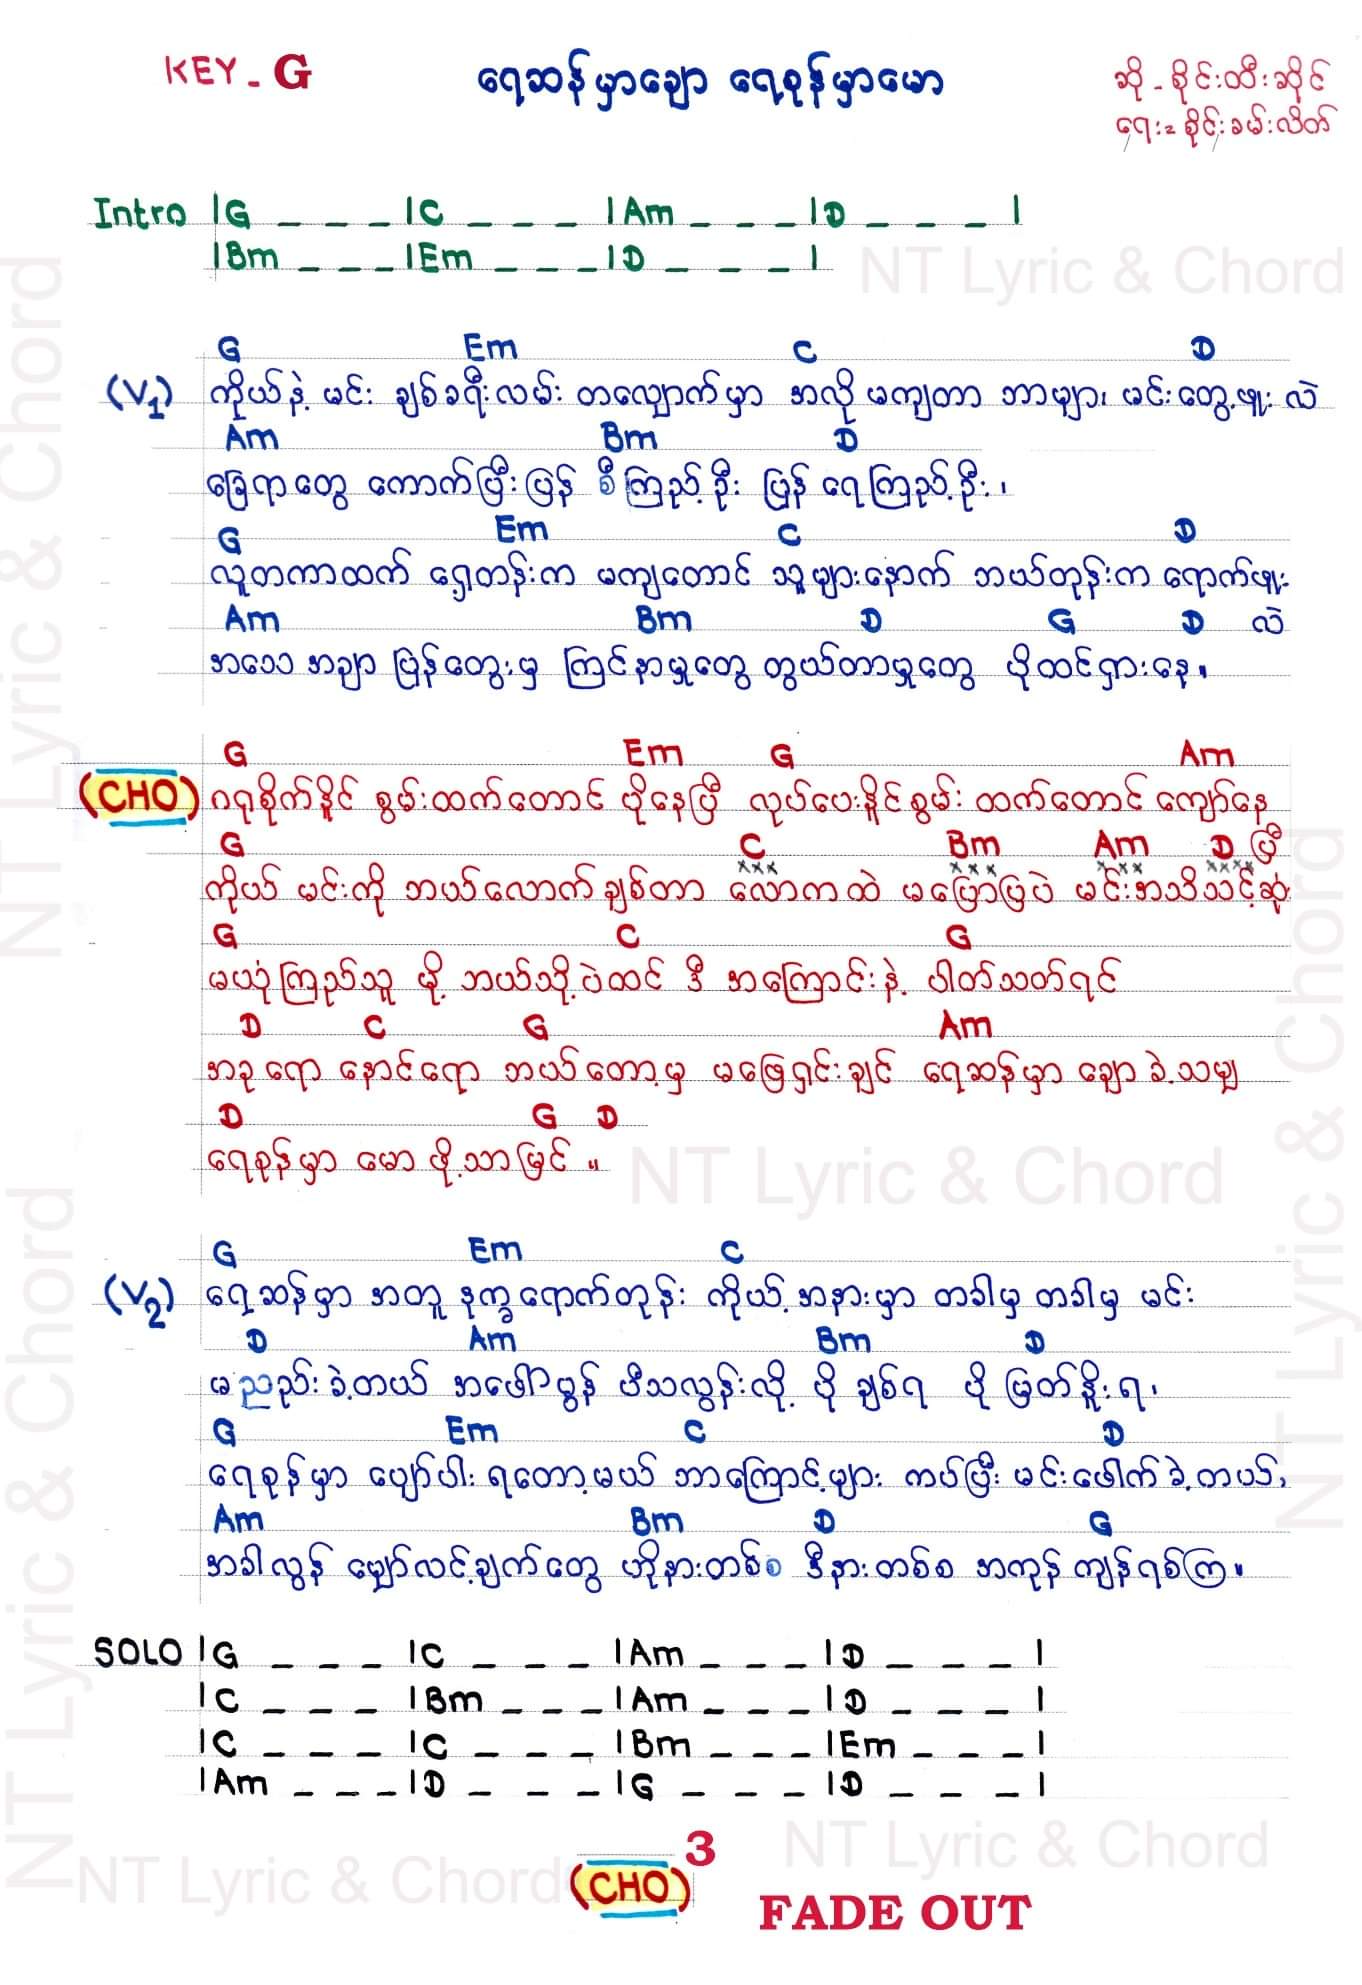 KEY - G
ရေဆန်မှာချော ရေစုန်မှာမော
ဆို - စိုင်းထီးဆိုင်
ရေး = စိုင်းခမ်းလိတ်
Intro |G _ _ _ |C _ _ _ |Am _ _ _ |D _ _ _ |
|Bm _ _ _ |Em _ _ _ |D _ _ _ |
NT Lyric & Chord
G Em C D
(V1) ကိုယ်နဲ့ မင်း ချစ်ခရီးလမ်း တလျှောက်မှာ အလိုမကျတာ ဘာများ မင်းတွေ့ဖူး လဲ
Am Bm D
ခြေရာတွေ ကောက်ပြီးပြန် စီကြည့်ဦး ပြန် ရေကြည့်ဦး ၊
G Em C D
လူတကာထက် ရှေ့တန်းက မကျတောင် သူများနောက် ဘယ်တုန်းက ရောက်ဖူး
Am Bm D G D လဲ
အသေ အချာ ပြန်တွေးမှ ကြင်နာမှုတွေ တွယ်တာမှုတွေ ပိုထင်ရှားနေ ။
G Em G Am
(CHO) ဂရုစိုက်နိုင် စွမ်းထက်တောင် ပိုနေပြီ လုပ်ပေးနိုင်စွမ်း ထက်တောင် ကျော်နေ
G C Bm Am D ပြီ
ကိုယ် မင်းကို ဘယ်လောက်ချစ်တာ လောကထဲ မပြောပြပဲ မင်းအသိသင့်ဆုံး
G C G
မယုံကြည်သူ မို့ ဘယ်သို့ပဲထင် ဒီ အကြောင်းနဲ့ ပါတ်သတ်ရင်
D C G Am
အခု ရော နောင်ရော ဘယ်တော့မှ မဖြေရှင်းချင် ရေဆန်မှာ ချော ခဲ့သမျှ
D G D
ရေစုန်မှာ မော ဖို့သာမြင် ။
NT Lyric & Chord
G Em C
(V2) ရေဆန်မှာ အတူ နက္ခရောက်တုန်း ကိုယ့်အနားမှာ တခါမှ တခါမှ မင်း
D Am Bm D
မညည်းခဲ့တယ် အဖော်မွန် ပီသလွန်းလို့ ပို ချစ်ရ ပို မြတ်နိုးရ ၊
G Em C D
ရေစုန်မှာ ပျော်ပါး ရတော့မယ် ဘာကြောင့်များ ကပ်ပြီး မင်းဖေါက်ခဲ့တယ် ၊
Am Bm D G
အခါလွန် မျှော်လင့်ချက်တွေ ဟိုနားတစ်စ ဒီနားတစ်စ အကုန် ကျန်ရစ်ကြ ။
SOLO |G _ _ _ |C _ _ _ |Am _ _ _ |D _ _ _ |
|C _ _ _ |Bm _ _ _ |Am _ _ _ |D _ _ _ |
|C _ _ _ |C _ _ _ |Bm _ _ _ |Em _ _ _ |
|Am _ _ _ |D _ _ _ |G _ _ _ |D _ _ _ |
(CHO) 3
FADE OUT
NT Lyric & Chord
NT Lyric & Chord
NT Lyric & Chord
NT Lyric & Chord
NT Lyric & Chord
NT Lyric & Chord